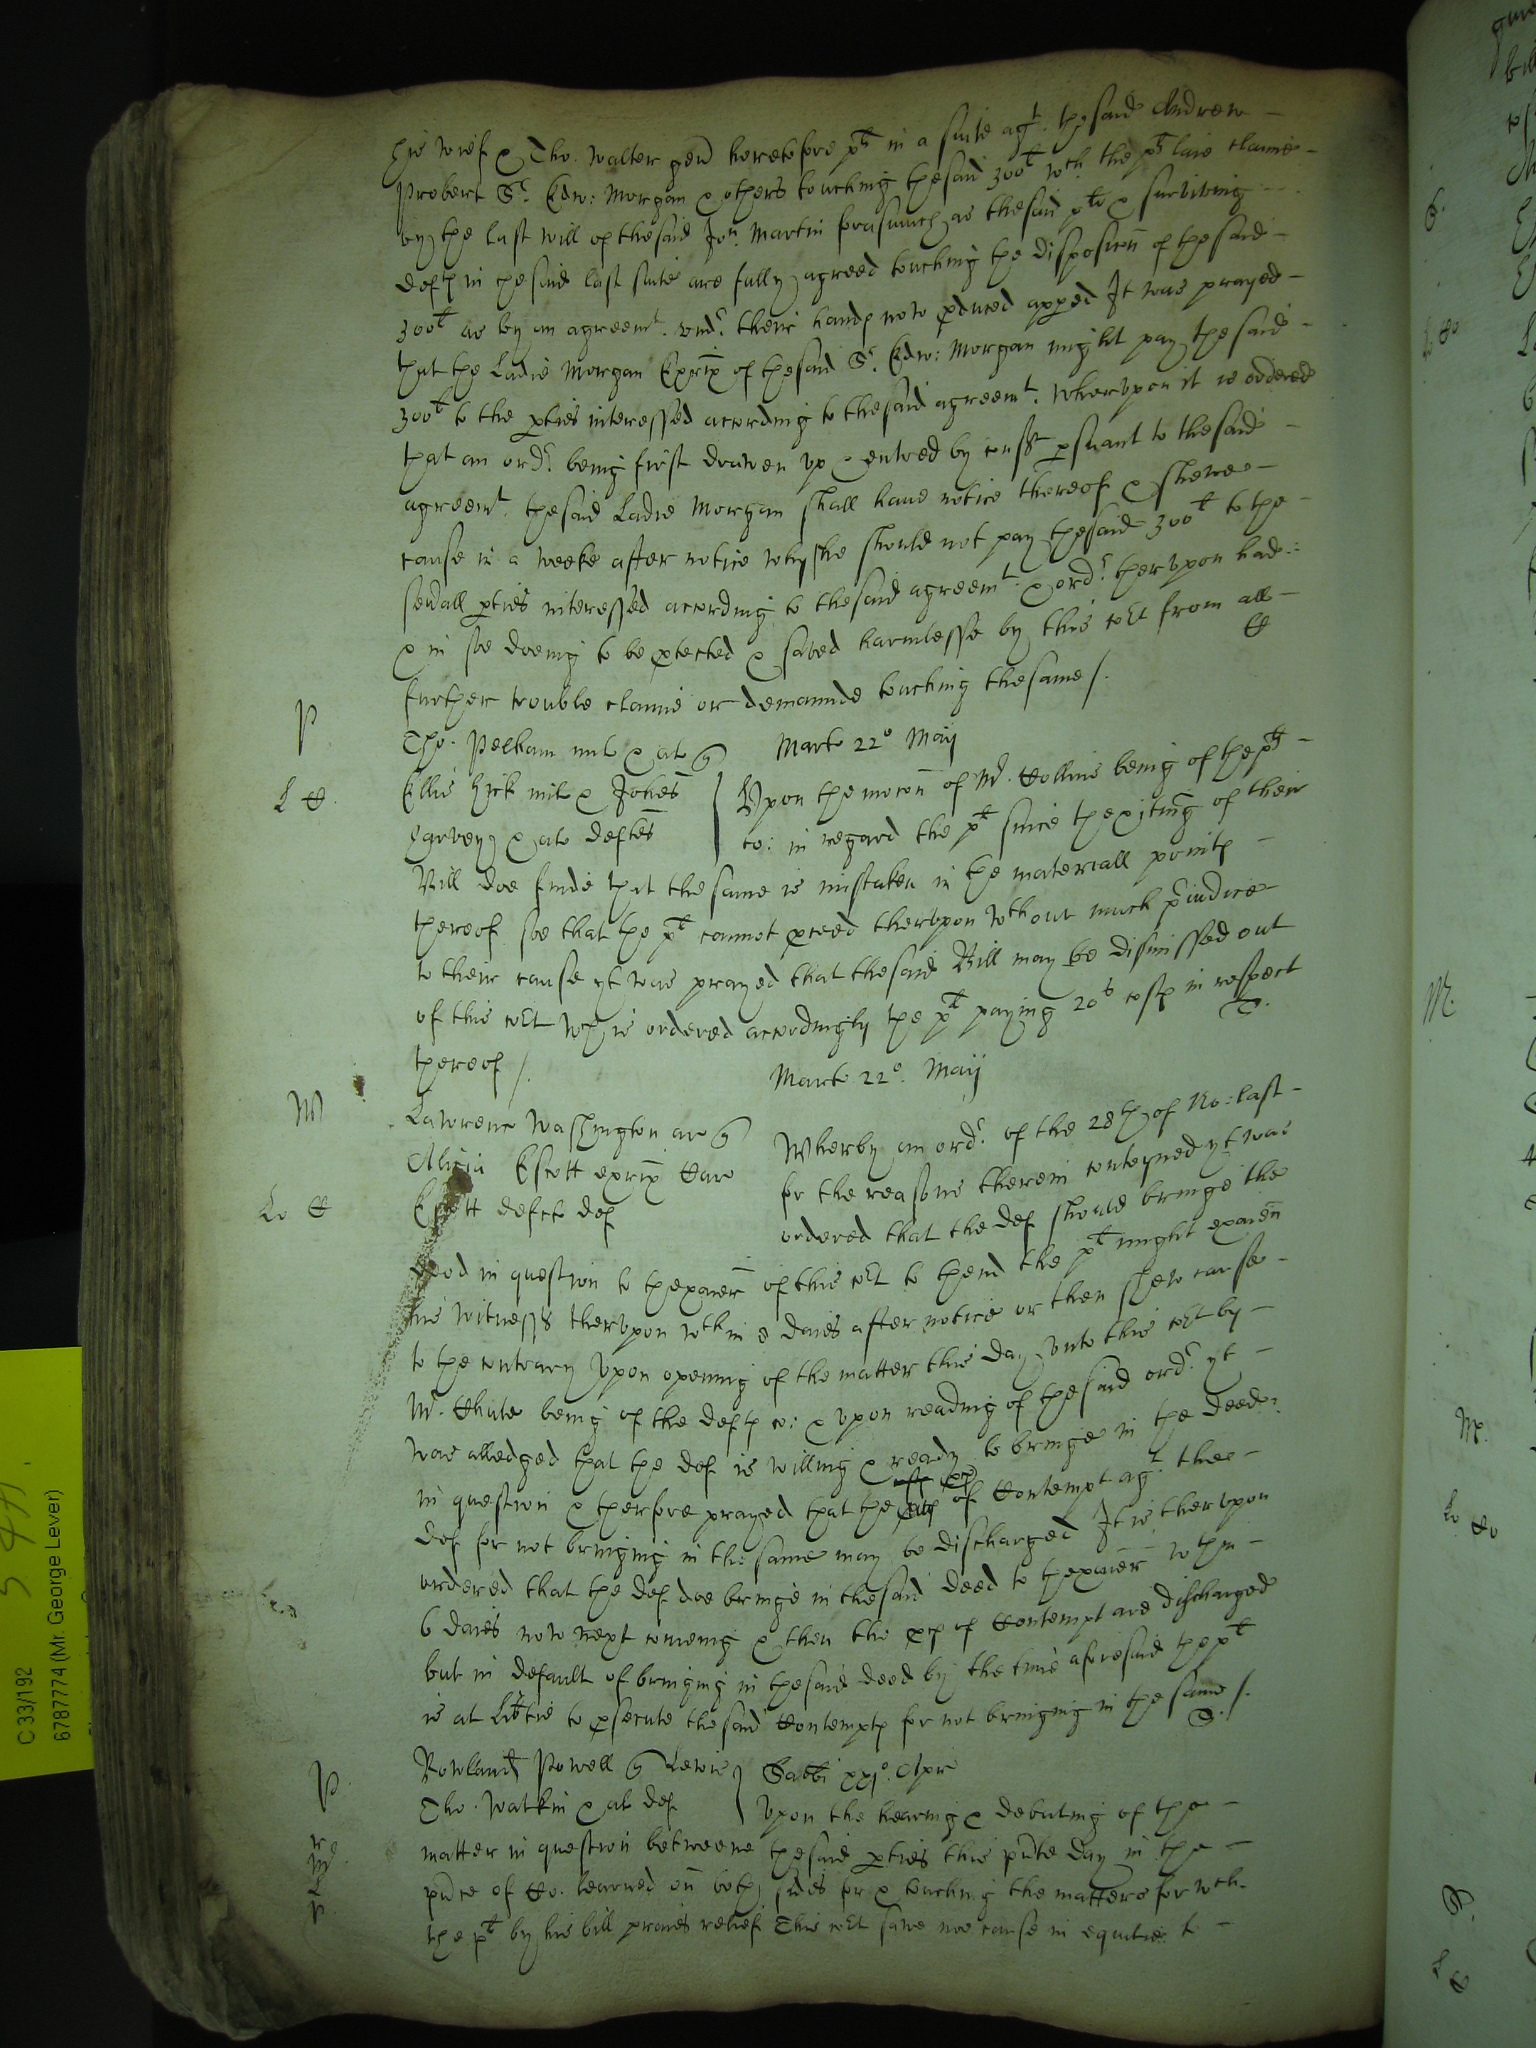 his wief & Tho. Walter gen heretofore plts in a suite agt. the said Andrew
Probert Sr. Edw: Morgan & others touching the said 300l wch the plts laie claime
by the last will of the said Jon. Martin forasmuch as the said plts & surviving
defts in the said last suite are fully agreed touching the disposicon of the said
300l as by an agreemt. undr. their hands now pduced apped It was prayed
that the Ladie Morgan Exrix of the said Sr. Edw: Morgan might pay the said
300l to the pties interessed according to the said agreemt. Wherupon it is ordered
that an ordr. being first drawen up & entred by consst psuant to the said
agreemt. the said Ladie Morgan shall have notice thereof & shewe
cause in a weeke after notice why she should not pay the said 300l to the
sevall pties interessed according to the said agreemt. & ordr. therupon had
& in soe doeing to be ptected & saved harmlesse by this cort from all
further trouble claime or demaunde touching the same /.
P
Tho. Pelham mil & al q
Marte 22o Maij
L H.
Ellis Hick mil & Johes
Harvey & al deftes
Upon the mocon of Mr. Hollins being of the plts
co: in regard the plt since thexiting of their
Bill doe finde that the same is mistaken in the materiall points
thereof soe that the plt cannot pceed therupon wthout much piudice
to their cause yt was prayed that the said Bill may be dismissed out
of this cort wch is ordered accordingly the plt paying 20s costs in respect
thereof /.
Marte 22o. Maij
W
Lawrenc Washington ar q
Alicia Escott exrix Har
Lo H
Escott defct def
Wherby an ordr. of the 28th of No: last
for the reasons therein conteyned yt was
ordered that the def should bringe the
deed in question to thexamr of this cort to thend the plt might examn
his witnesss therupon wthin 8 daies after notice or then shew cause
to the contrary Upon opening of the matter this day unto this cort by
Mr. Chute being of the defts co: & upon reading of the said ordr. yt
was alledged that the def is willing & ready to bringe in the deede
in question & therfore prayed that the pcs of Contempt agt. the
def for not bringing in the same may be discharged It is therupon
ordered that the def doe bringe in the said deed to thexamr wthin
6 daies now next comeing & then the pcs of Contempt are discharged
but in default of bringing in the said deed by the time aforesaid the plt
is at libtie to psecute the said Contempts for not bringing in the same /.
P.
Rowland Powell q Lewis
Tho. Watkin & al def
Sabbi xxjo. Apr
Upon the hearing & debating of the
matter in question betweene the said pties this pnte day in the
pnce of Co. learned on both sides for & touching the matters for wch
the plt by his bill praies relief This cort sawe noe cause in equitie t
C 33/192
6787774 (Mr. George Lever)